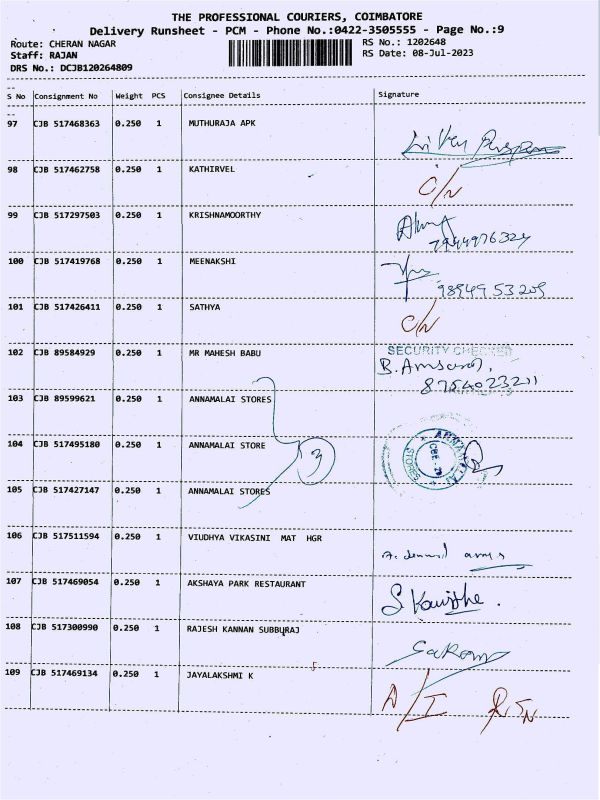 THE PROFESSIONAL COURIERS, COIMBATORE
Delivery Runsheet - PCM - Phone No.:0422-3505555 - Page No.:9
Route: CHERAN NAGAR RS No.: 1202648
Staff: RAJAN RS Date: 08-Jul-2023
DRS No.: DCJB120264809
S No Consignment No Weight PCS Consignee Details Signature
97 CJB 517468363 0.250 1 MUTHURAJA APK
98 CJB 517462758 0.250 1 KATHIRVEL C/N
99 CJB 517297503 0.250 1 KRISHNAMOORTHY
7944976324
100 CJB 517419768 0.250 1 MEENAKSHI
101 CJB 517426411 0.250 1 SATHYA C/N
102 CJB 89584929 0.250 1 MR MAHESH BABU SECURITY CHECKED
8754023211
103 CJB 89599621 0.250 1 ANNAMALAI STORES
104 CJB 517495180 0.250 1 ANNAMALAI STORE 3 ANNAMALAI STORES
105 CJB 517427147 0.250 1 ANNAMALAI STORES
106 CJB 517511594 0.250 1 VIUDHYA VIKASINI MAT HGR
107 CJB 517469054 0.250 1 AKSHAYA PARK RESTAURANT
108 CJB 517300990 0.250 1 RAJESH KANNAN SUBBURAJ
109 CJB 517469134 0.250 1 JAYALAKSHMI K A/I